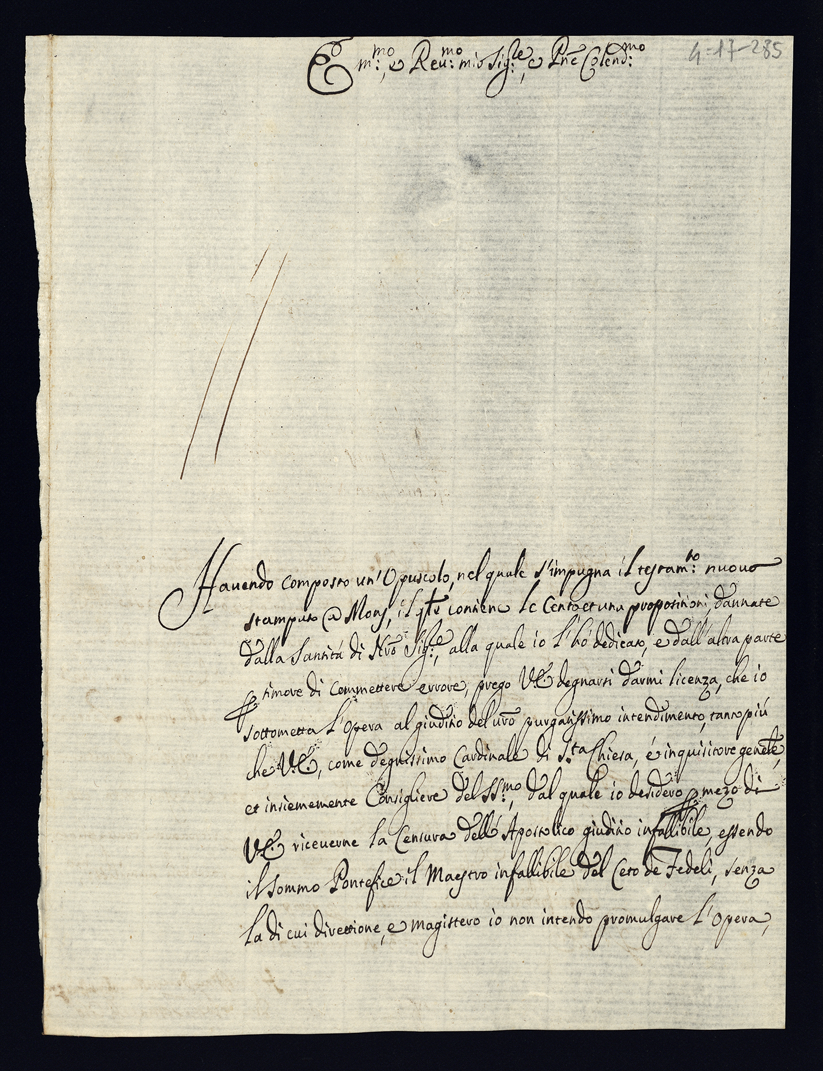 4-17-285
Em:mo, e Reu:mo mio Sig:re, e Pne Colend:mo
Hauendo composto un' Opuscolo, nel quale s'impugna il testam:to nuouo
stampato @ Mons, il qle contiene le Cento et una propositioni dannate
dalla Santità di Nro Sig:re, alla quale io l'hò dedicato, e dall'altra parte
timore di commettere errore, prego VE. degnarsi darmi licenza, che io
sottometta l'Opera al giuditio del uro purgatissimo intendimento, tanto più
che V:E., come degnissimo Cardinale di S.ta Chiesa, é inquisitore genele,
et insiememente Consigliere del SS:mo, dal quale io desidero mezo di
VE. riceuerne la Censura dell' Apostolico giuditio infallibile, essendo
il sommo Pontefice il Maestro infallibile del Ceto de Fedeli, senza
la di cui direttione, e magistero io non intendo promulgare l'Opera,